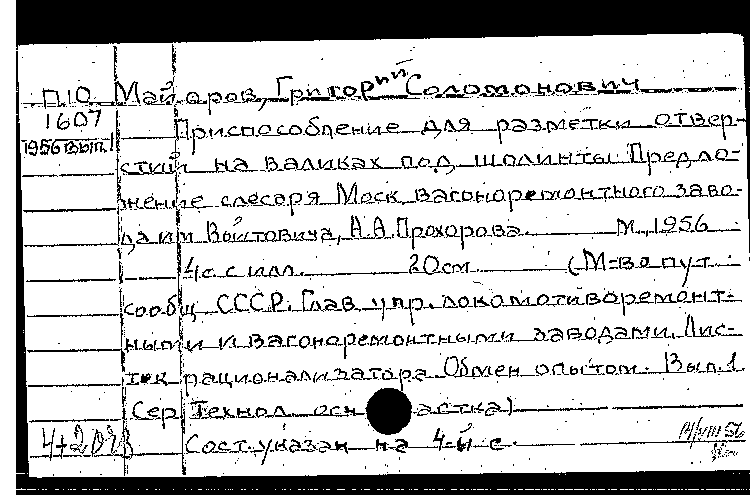 П.10 Майоров, Григорий Соломонович
1607
Приспособление для разметки отвер-
1956 вып.1
стий на валиках под шплинты. Предло-
жение слесаря Моск. вагоноремонтного заво-
да им Войтовича, А.А.Прохорова. М., 1956
4 с. с илл. 20см. (М-во пут.
сообщ. СССР. Глав. упр. локомотиворемонт-
ными и вагоноремонтными заводами. Лис-
ток рационализатора. Обмен опытом. Вып.1
Сер. Технол. осн астка)
Сост. указан на 4-й с.